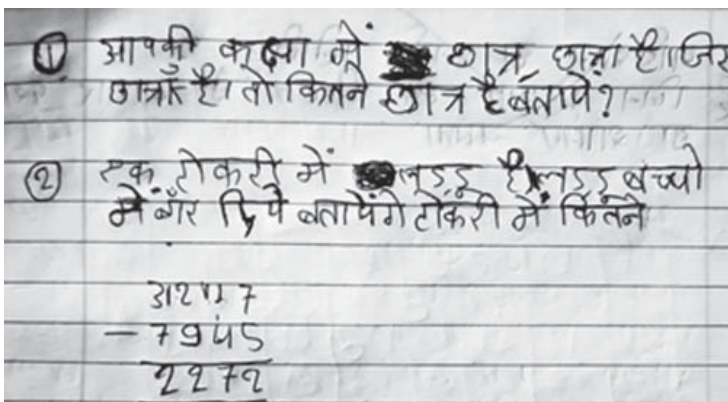 ① आपकी कक्षा में छात्र, छात्रा है। जिस
छात्राएँ है। तो कितने छात्र है बताये?
② एक टोकरी में लड्डू है। लड्डू बच्चो
में बाँट दिये बतायेंगे टोकरी में कितने
7
- 7945
2272